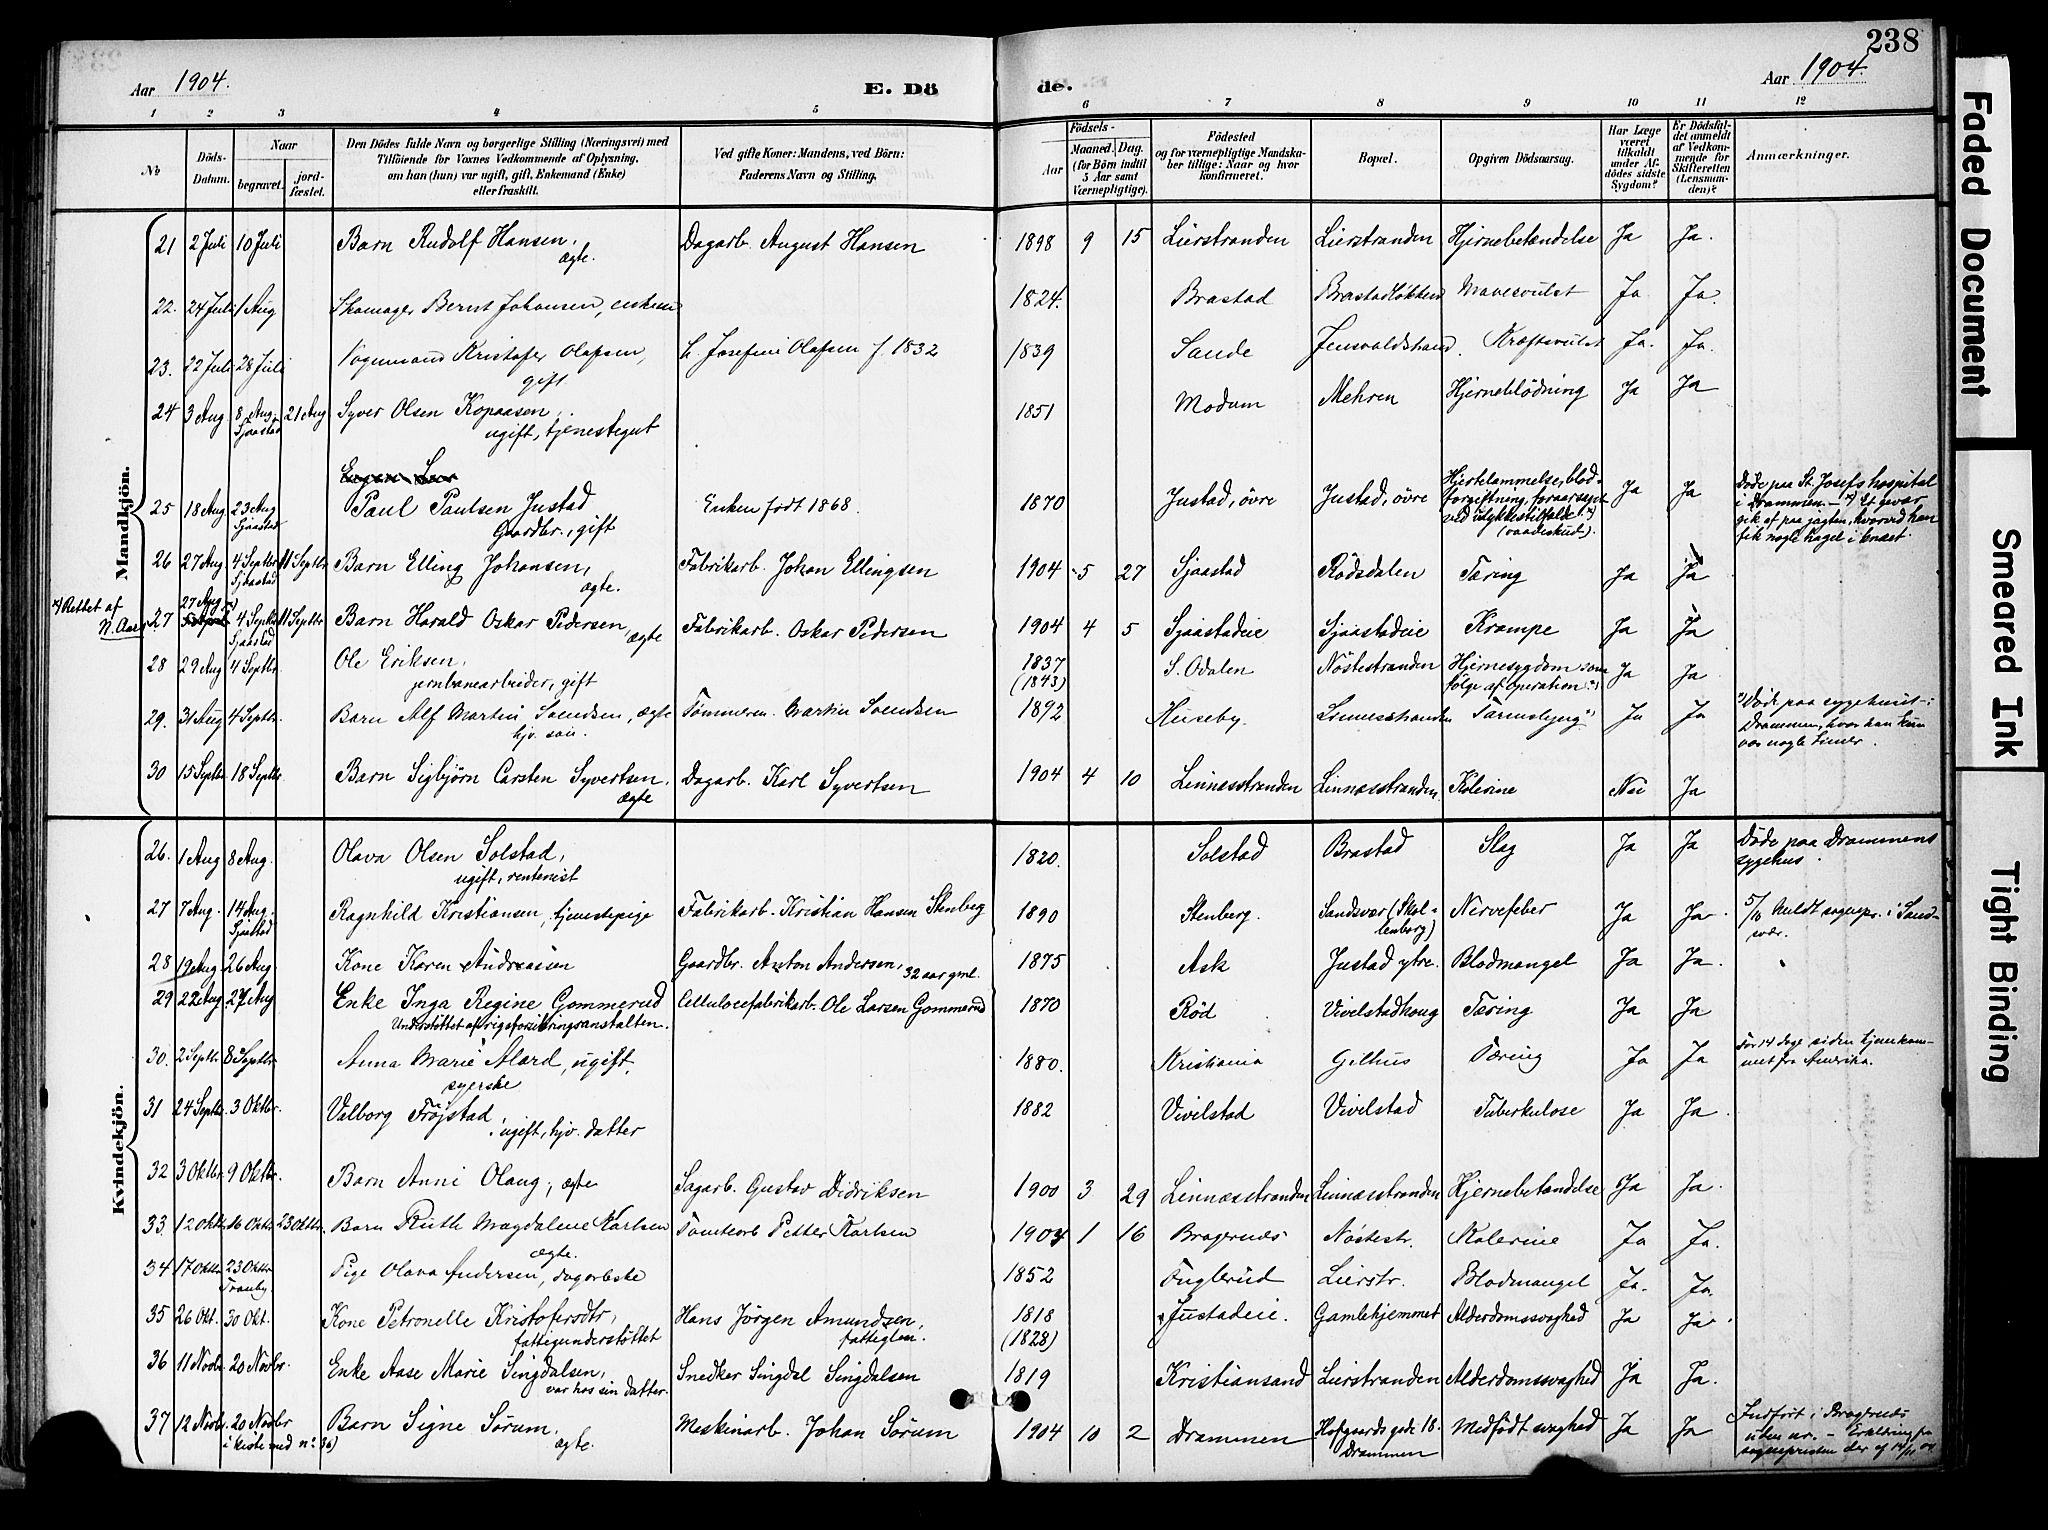 238
Aar 1904.
E. Dö
de.
Aar 1904.
1 2 3 4 5 6 7 8 9 10 11 12
No
Döds-Datum.
Naar
begravet.
jord-fæstet.
Den Dödes fulde Navn og borgerlige Stilling (Næringsvei) med
Tilföiende for Voxnes Vedkommende af Oplysning,
om han (hun) var ugift, gift, Enkemand (Enke)
eller fraskilt.
Ved gifte Koner: Mandens, ved Börn:
Faderens Navn og Stilling.
Födsels-
Aar
Maaned. Dag.
(for Börn indtil
5 Aar samt
Værnepligtige).
Födested
og for værnepligtige Mandska-
ber tillige: Naar og hvor
konfirmeret.
Bopæl.
Opgiven Dödsaarsag.
Har Læge
været
tilkaldt
under Af-
dödes sidste
Sygdom?
Er Dödsfal-
det anmeldt
af Vedkom-
mende for
Skifteretten
(Lensman-
den)?
Anmærkninger.
Mandkjön.
21 2 Juli 10 Juli Barn Rudolf Hansen, ægte. Dagarb. August Hansen 1898 9 15 Lierstranden Lierstranden Hjernebetændelse Ja Ja.
22. 24 Juli 1 Aug Skomager Bernt Johansen, enkem 1824. Brastad Brastadløkken Mavesvulst Ja Ja.
23. 22 Juli 28 Juli Vognmand Kristofer Olafsen, gift Josefine Olafsen f. 1832 1839 Sande Kræftsvulst Ja. Ja.
24 3 Aug 8 Aug. Sjaastad 21 Aug Syver Olsen Kopaasen, ugift, tjenestegut 1851 Modum Mehren Hjerneblödning Ja Ja
25 18 Aug 23 Aug Sjaastad Paul Paulsen Justad Gaardbr., gift Enken født 1868. 1870 Justad, övre Justad, övre Hjertelammelse, blod-
forgiftning, foraarsaget
ved ulykkestilfælde x)
(vaadeskud). Ja Ja Döde paa St. Josefs hospital
i Drammen. – x) Et gevær
gik af paa jagten, hvorved han
fik nogle hagel i knæet.
26 27 Aug 4 Septbr Sjaastad 11 Septbr Barn Elling Johansen, ægte. Fabrikarb. Johan Ellingsen 1904 5 27 Sjaastad Rødsdalen Tæring Ja Ja
x) Rettet af
N. Aars
27 27 Aug x) 4 Septbr Sjaastad 11 Septbr Barn Harald Oskar Pedersen, ægte Fabrikarb. Oskar Pedersen 1904 4 5 Sjaastadeie Sjaastadeie Krampe Ja Ja
28 29 Aug 4 Septbr. Ole Eriksen, jernbanearbeider, gift 1837 (1843) S. Odalen Nöstestranden Hjernesygdom som
følge af operation Ja Ja
29. 31 Aug 4 Septbr. Barn Alf Martin Svendsen, ægte hjv. søn. Tömmerm. Martin Svendsen 1892 Huseby. Linnesstranden Tarmslyng Ja Ja Døde paa sygehuset i
Drammen, hvor han kun
var nogle timer.
30 15 Septbr 18 Septbr. Barn Sigbjörn Carsten Syvertsen, ægte Dagarb. Karl Syvertsen 1904 4 10 Linnesstranden Linnesstranden Kolerine Nei Ja
Kvindekjön.
26. 1 Aug 8 Aug. Olava Olsen Solstad, ugift, rentenist 1820. Solstad Brastad Slag Ja Ja Döde paa Drammens
sygehus.
27 7 Aug. 14 Aug. Sjaastad Ragnhild Kristiansen, tjenestepige Fabrikarb. Kristian Hansen Stenberg 1890 Stenberg. Sandsvær (Skol-
lenborg) Nervefeber Ja Ja. 5/10 Meldt sognepr. i Sand-
svær.
28 19 Aug 26 Aug. Kone Karen Andreasen Gaardbr. Anton Andersen, 32 aar gml. 1875 Ask Justad ytre. Blodmangel Ja Ja.
29 22 Aug 27 Aug Enke Inga Regine Gommerud Understöttet af rigsforsikringsanstalten. Cellulosefabrikarb. Ole Larsen Gommerud 1870 Röd Vivelstadhaug Tæring Ja Ja
30. 2 Septbr. 8 Septbr Anna Marie Alard, ugift, syerske 1880. Kristiania Gilhus Tæring Ja Ja For 14 dage siden hjemkom-
met fra Amerika.
31 24 Septbr. 3 Oktbr. Valborg Fröjstad, ugift, hjv. datter 1882 Vivelstad Vivelstad Tuberkulose Ja Ja.
32 3 Oktbr. 9 Oktbr. Barn Anni Olaug, ægte Sagarb. Gustav Didriksen 1900 3 29 Linnesstranden Linnesstranden Hjernebetændelse Ja Ja.
33. 12 Oktbr 16 Oktbr 23 Oktbr. Barn Ruth Magdalene Karlsen ægte. Tomtearb Petter Karlsen 1904 1 16 Bragernæs Nöstestr. Kolerine Ja Ja.
34 17 Oktbr 23 Oktbr Tranby. Pige Olava Andersen, dagarbeiderske 1852 Fuglerud Lierstr. Blodmangel Ja. Ja.
35 26 Okt. 30 Okt. Kone Petronelle Kristofersdtr, fattigunderstöttet Hans Jörgen Amundsen, fattiglem. 1818 (1828) Justadeie. Gamlehjemmet Alderdomssvaghed Ja Ja.
36 11 Novbr. 20 Novbr. Enke Aase Marie Singdalsen, var hos sin datter. Snedker Singdal Singdalsen 1819 Kristiansand Lierstranden Alderdomssvaghed Ja Ja.
37 12 Novbr. 20 Novbr i kiste med nr. 36) Barn Signe Sörum, ægte. Maskinarb. Johan Sörum 1904 10 2 Drammen Hofgaards gade 18.
Drammen Medfödt svaghed Ja Ja Indfört i Bragernæs
uden nr. – Erklæring fra
sognepresten der af 14/11 04
Faded Document
Smeared Ink
Tight Binding